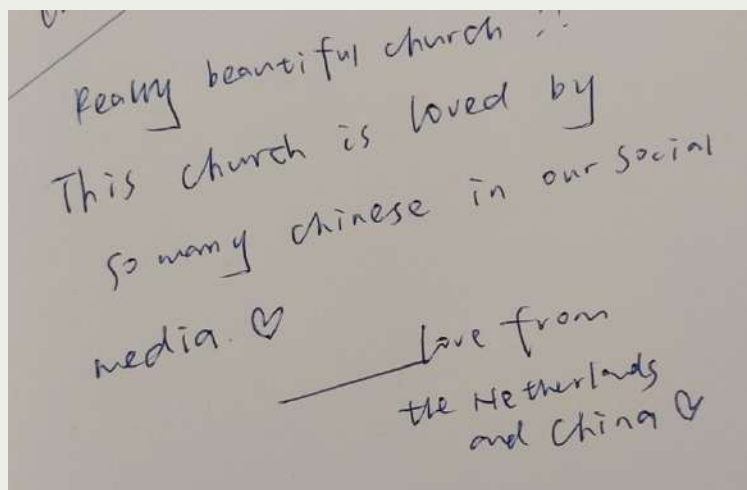 Really beautiful church !!
This church is loved by
so many chinese in our social
media. ♡
—— love from
the Netherlands
and China ♡